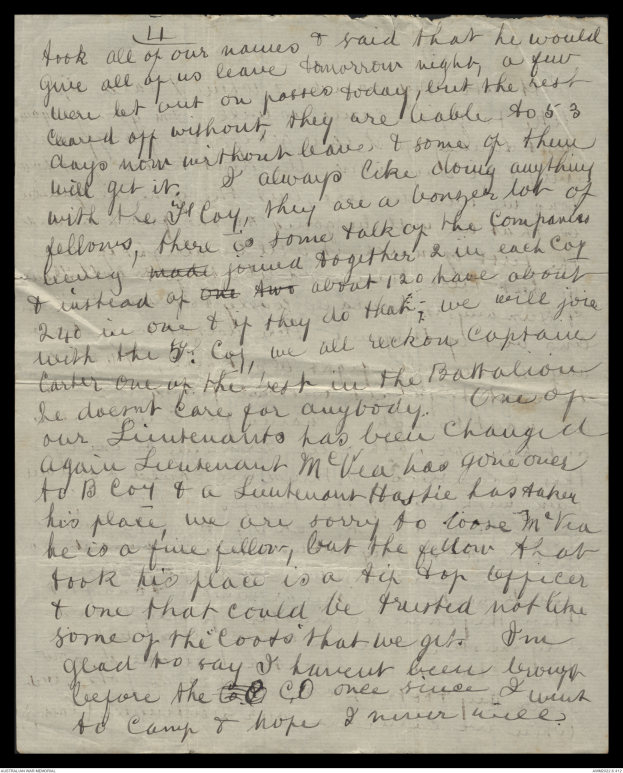 4
took all of our names & said that he would
give all of us leave tomorrow night, a few
were let out on passes today, but the rest
cleared off without, they are liable to 53
days now without leave & some of them
will get it. I always like doing anything
with the F Coy, they are a bonzer lot of
fellows, there is some talk of the Companies
being made joined together 2 in each Coy
& instead of one two about 120 have about
240 in one & if they do that, we will join
with the F. Coy, we all reckon Captain
Carter one of the best in the Battalion
he doesnt care for anybody. One of
our Lieutenants has been changed
again Lieutenant McVea has gone over
to B Coy & a Lieutenant Hastie has taken
his place, we are sorry to loose McVea
he is a fine fellow, but the fellow that
took his place is a tip top officer
& one that could be trusted not like
some of the "Coots" that we get. I'm
glad to say I havent been brought
before the C.O once since I went
to camp & hope I never will.
AUSTRALIAN WAR MEMORIAL